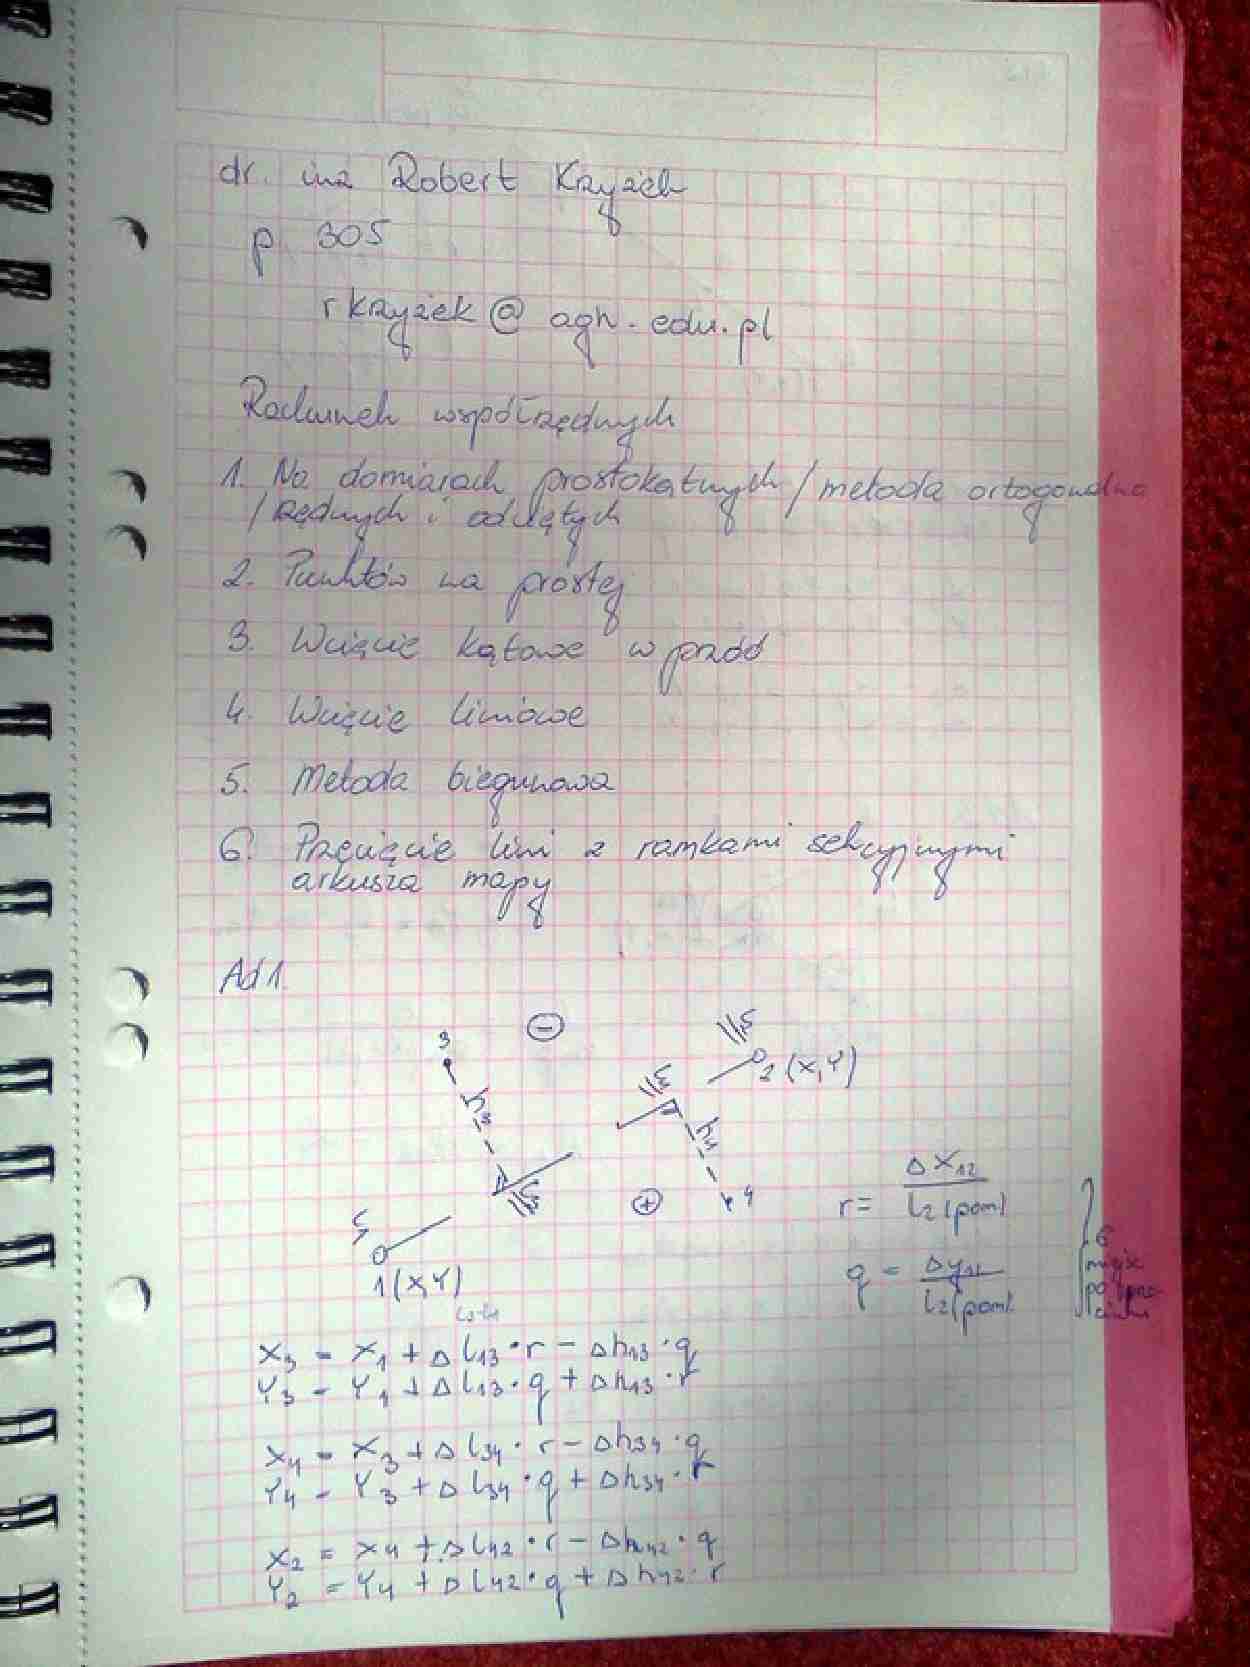 dr. inż Robert Krzyżek
p 305
rkrzyzek@agh.edu.pl
Rachunek współrzędnych
1. Na domiarach prostokątnych / metoda ortogonalna
/ rzędnych i odciętych
2. Punktów na prostej
3. Wcięcie kątowe w przód
4. Wcięcie liniowe
5. Metoda biegunowa
6. Przecięcie lini z ramkami sekcyjnymi
arkusza mapy
Ad 1.
3
−
2 (X,Y)
h3
h4
+
4
1 (X,Y)
r = ΔX12 / l2 (pom)
q = Δy12 / l2 (pom)
6
miejsc
po
X3 = X1 + Δl13 · r − Δh13 · q
Y3 = Y1 + Δl13 · q + Δh13 · r
X4 = X3 + Δl34 · r − Δh34 · q
Y4 = Y3 + Δl34 · q + Δh34 · r
X2 = X4 + Δl42 · r − Δh42 · q
Y2 = Y4 + Δl42 · q + Δh42 · r